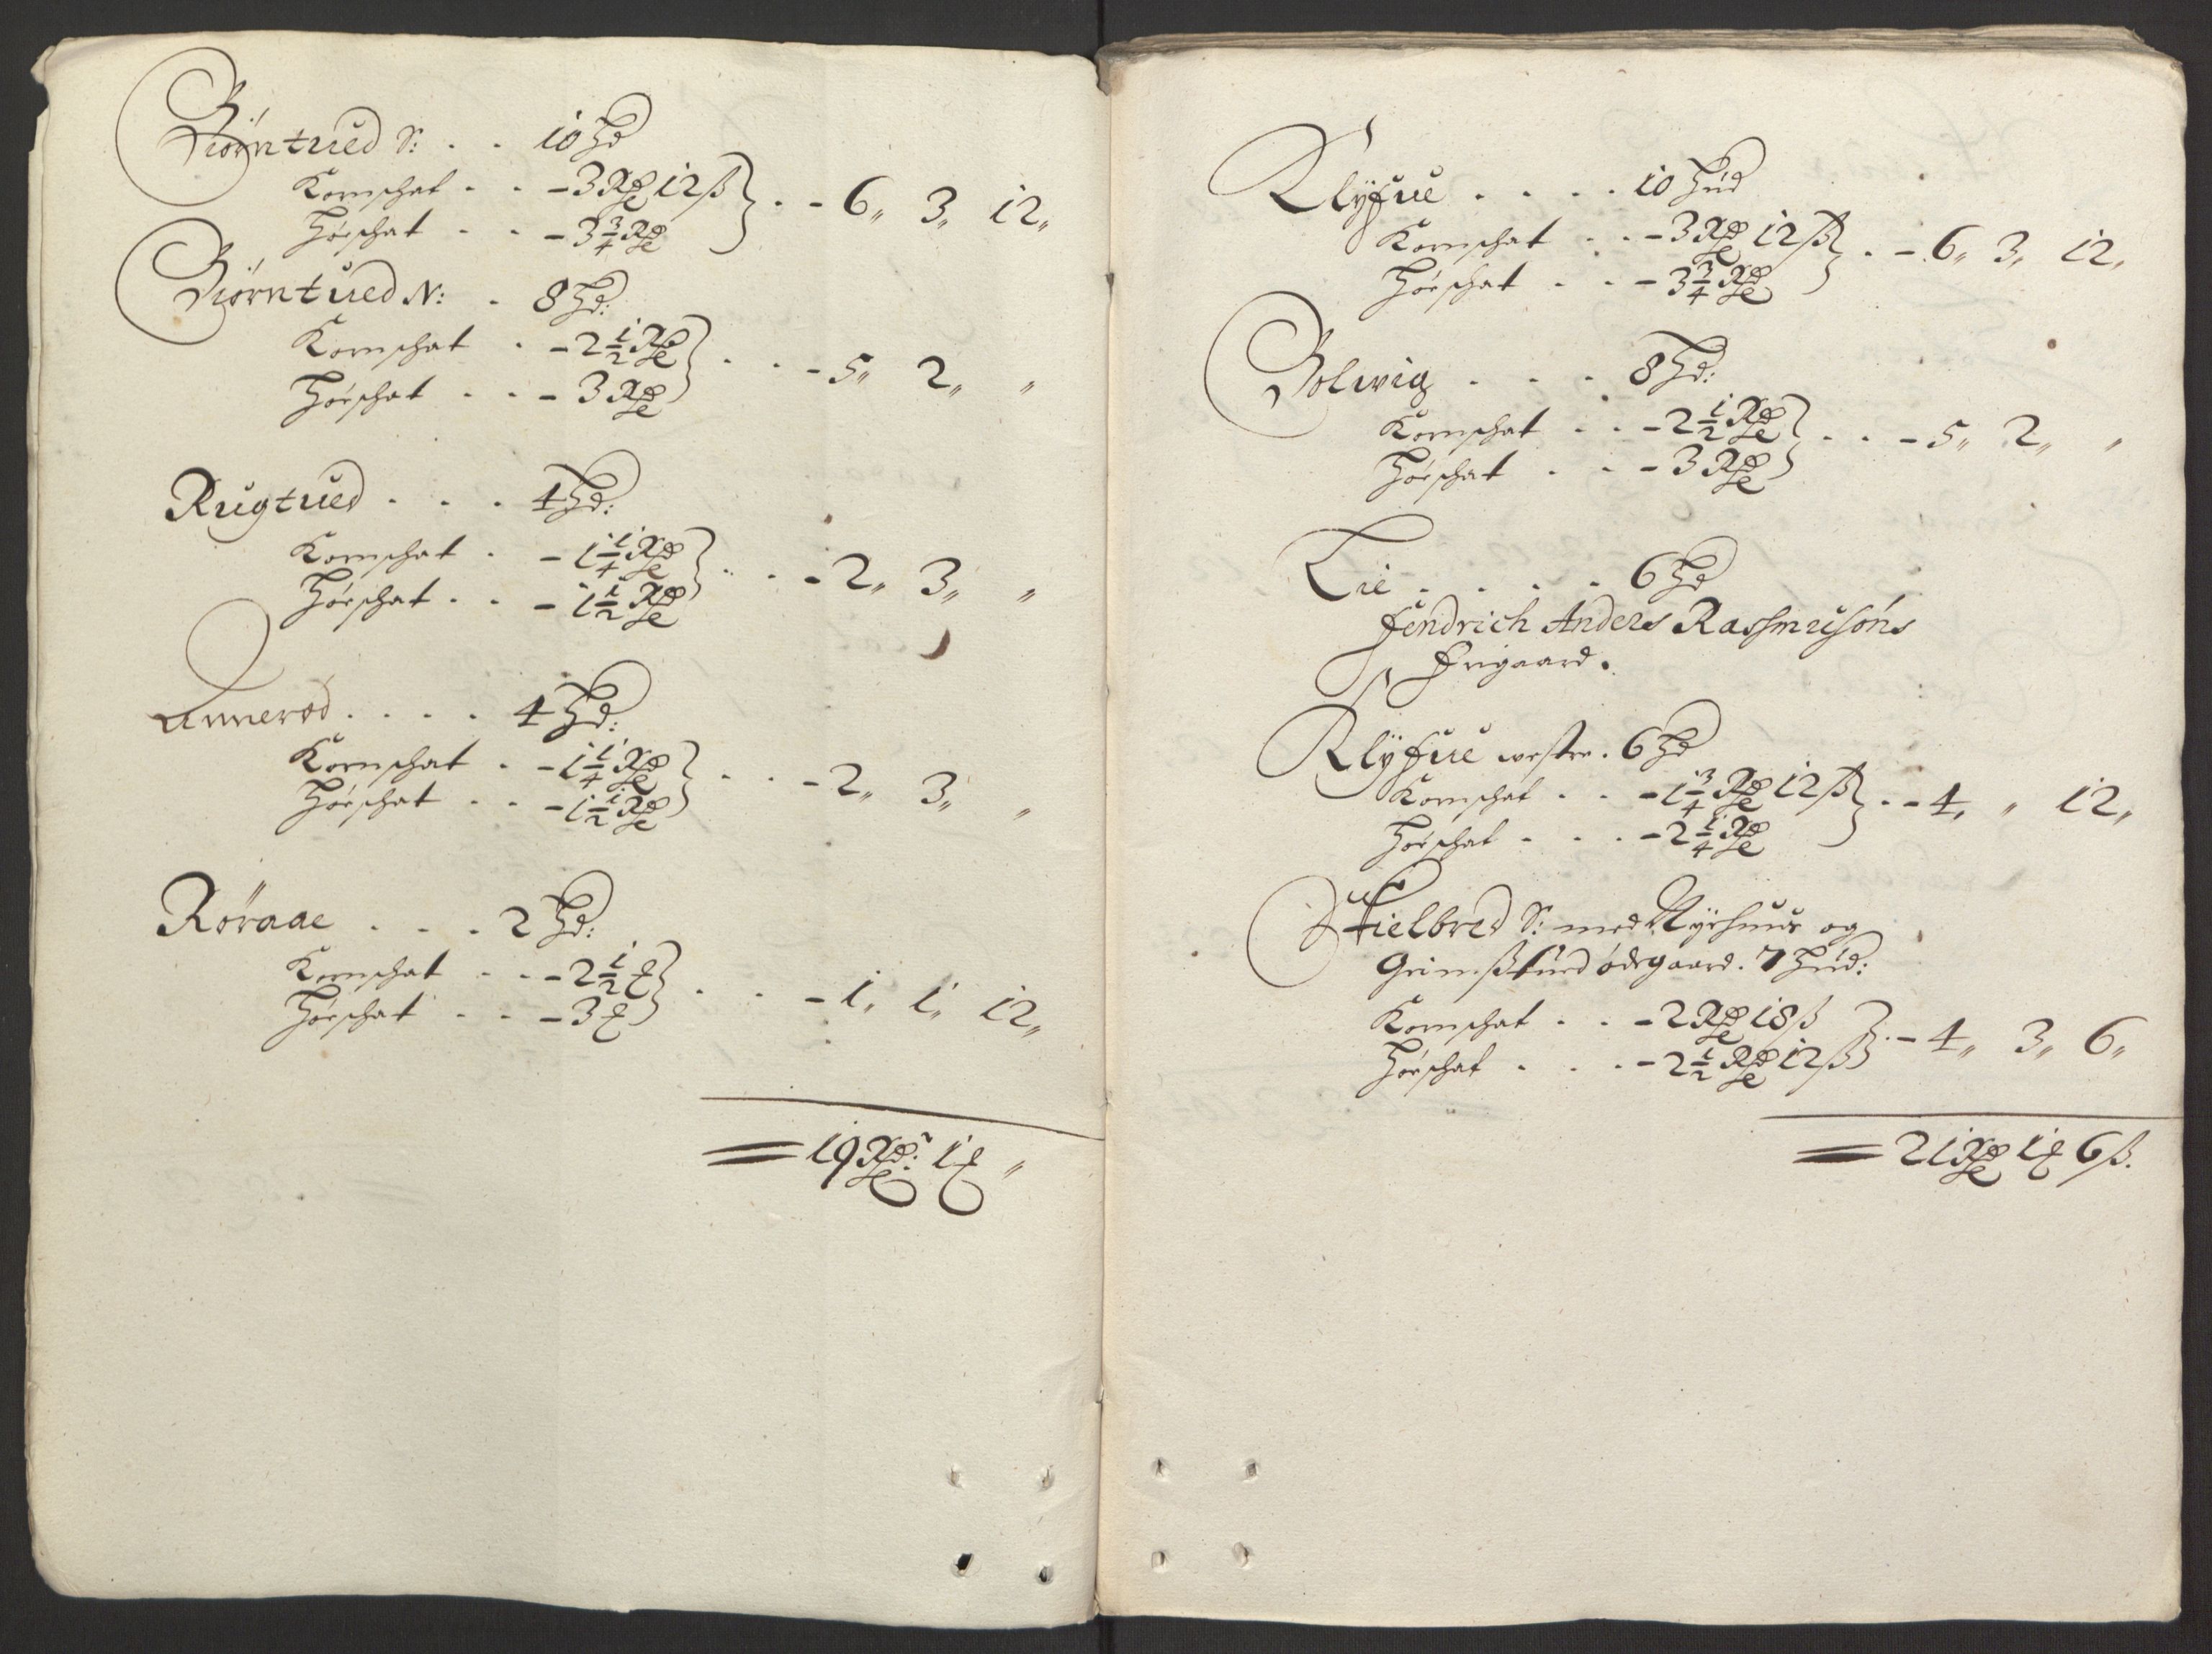 Biørntued S: . . 10 Hd
Kornschat . . - 3 Rd 12 ß } . . - 6„ 3„ 12„
Høeschat . . - 3 3/4 Rd
Biørntued N: . 8 Hd:
Kornschat . - 2 1/2 Rd } . . - 5„ 2„ „
Høeschat . . - 3 Rd
Rugtued . . . 4 Hd:
Kornschat . - 1 1/4 Rd } . . - 2„ 3„ „
Høeschat . . - 1 1/2 Rd
Unnerød . . . . 4 Hd:
Kornschat . - 1 1/4 Rd } . . - 2„ 3„ „
Høeschat . . - 1 1/2 Rd
Røraae . . . 2 Hd:
Kornschat . . - 2 1/2 ₰ } . . - 1„ 1„ 12„
Høeschat . . - 3 ₰
19 Rd: 1 ₰ „
Klyfue . . . . 10 Hud
Kornschat . . - 3 Rd 12 ß } . - 6„ 3„ 12„
Høeschat . . - 3 3/4 Rd
Bolwig . . . 8 Hd:
Kornschat . . - 2 1/2 Rd } . . - 5„ 2„ „
Høeschat . . - 3 Rd
Lie . . . . 6 Hd
Fendrich Anders Rassmusøns
Frigaard.
Klyfue westre . 6 Hd
Kornschat . . - 1 3/4 Rd 12 ß } . - 4„ „ 12„
Høeschat . . . - 2 1/4 Rd
Skielbred S: med Nyehuus og
Grimsstued ødegaard . 7 Hud:
Kornschat . . - 2 Rd 18 ß } . - 4„ 3„ 6„
Høeschat . . . - 2 1/2 Rd 12 ß
21 Rd 1 ₰ 6 ß.